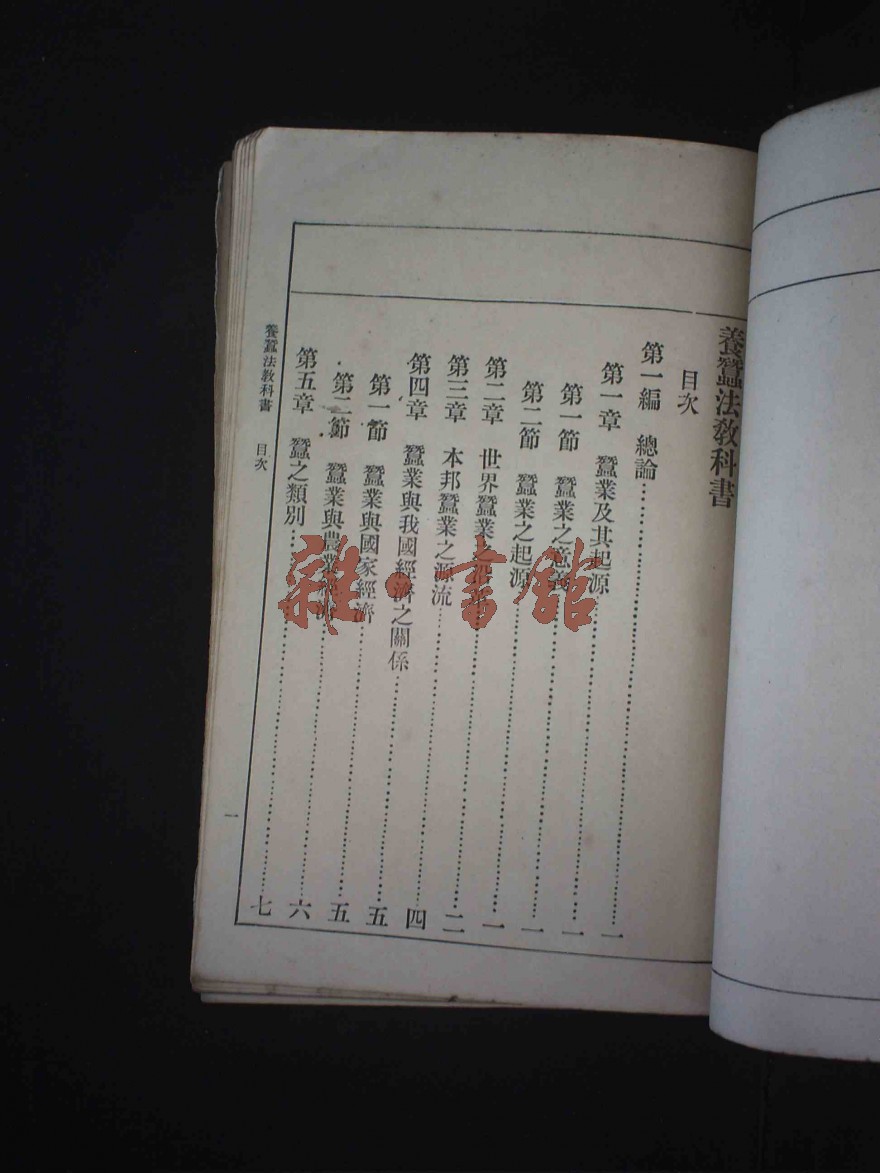 養蠶法教科書
目次
第一編 總論……一
第一章 蠶業及其起源……一
第一節 蠶業之意義……一
第二節 蠶業之起源……一
第二章 世界蠶業之……二
第三章 本邦蠶業之源流……四
第四章 蠶業與我國經濟之關係……五
第一節 蠶業與國家經濟……五
第二節 蠶業與農業……六
第五章 蠶之類別……七
養蠶法教科書 目次 一
雜·書館